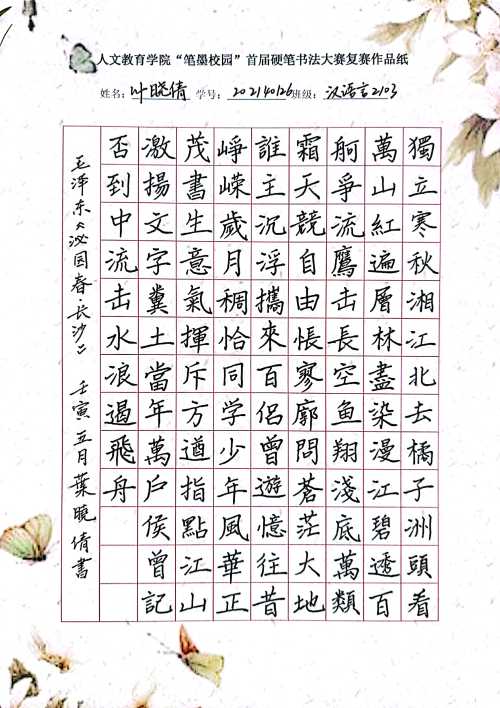 人文教育学院“笔墨校园”首届硬笔书法大赛复赛作品纸
姓名：叶晓倩 学号：202140126 班级：汉语言2103
獨立寒秋湘江北去橘子洲頭看
萬山紅遍層林盡染漫江碧透百
舸爭流鷹击長空鱼翔淺底萬類
霜天競自由悵寥廓問蒼茫大地
誰主沉浮攜來百侶曾遊憶往昔
崢嶸歲月稠恰同学少年風華正
茂書生意氣揮斥方遒指點江山
激揚文字糞土當年萬戶侯曾記
否到中流击水浪遏飛舟
毛泽东《沁园春·長沙》 壬寅五月葉曉倩書